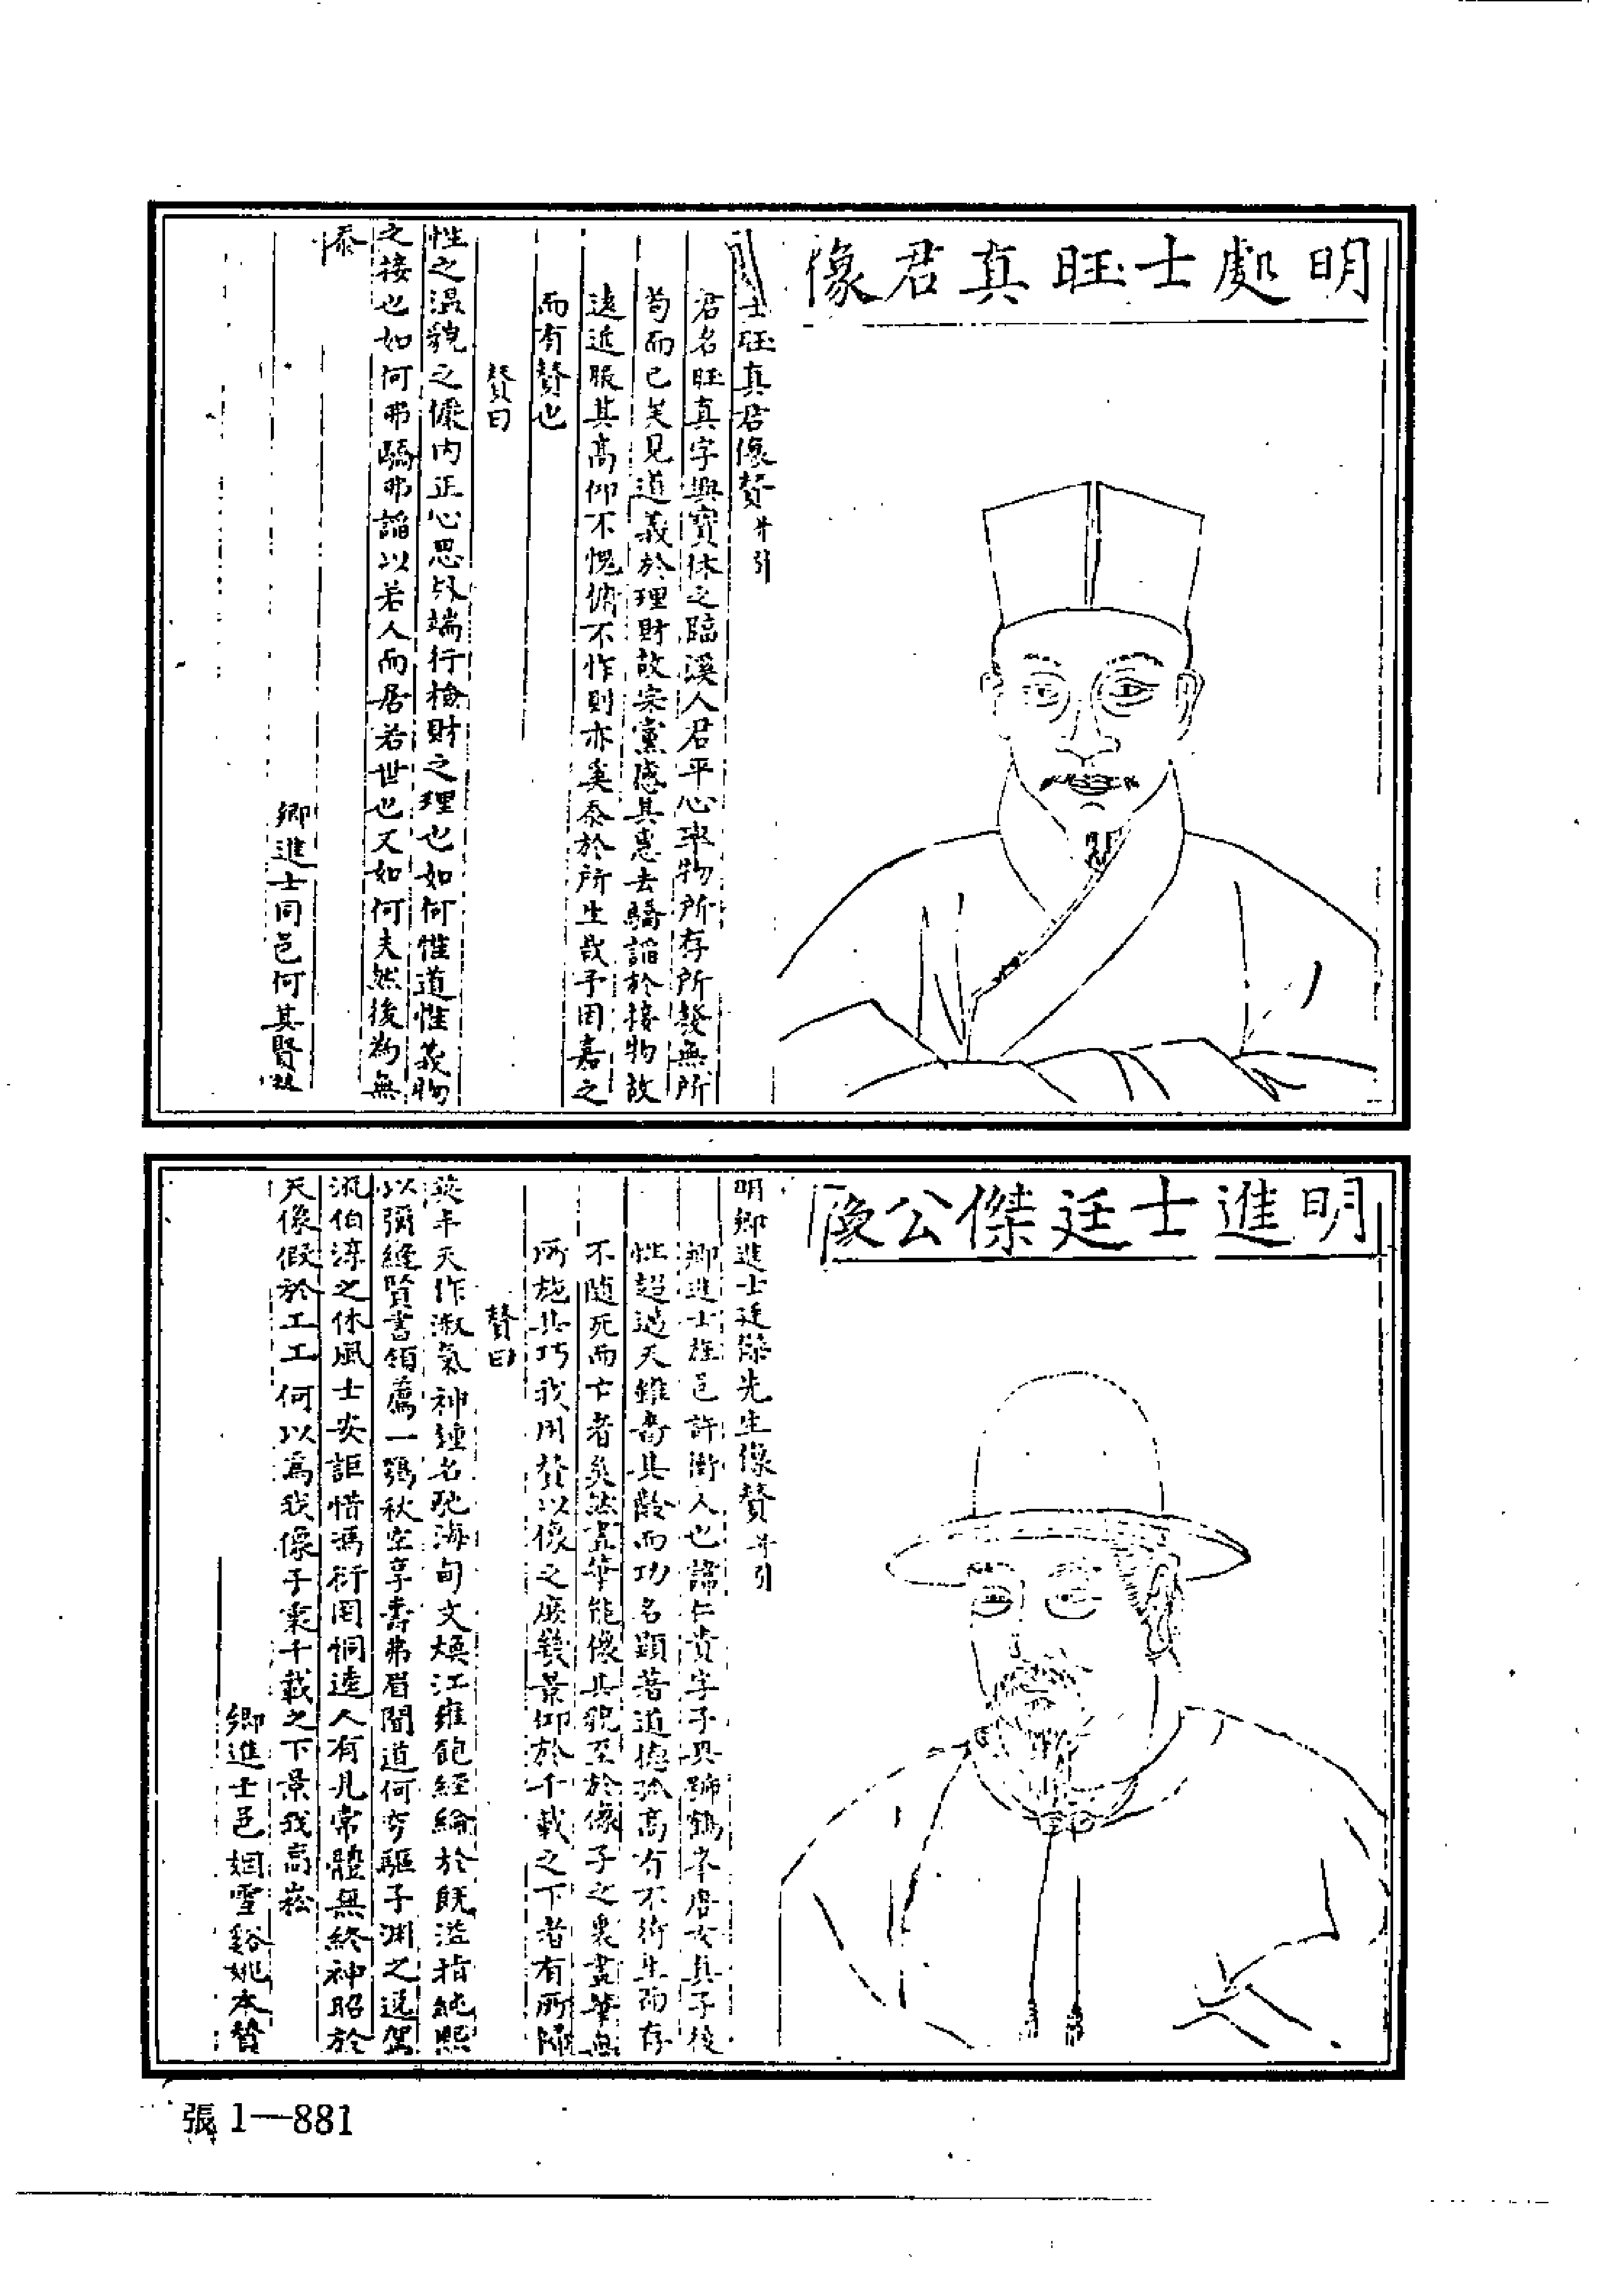 明處士旺真君像
士旺真君像贊并引
君名旺真字興寶休之臨溪人君平心率物所存所發無所
苟而已矣見道義於理財故宗黨感其惠去驕諂於接物故
遠近服其高仰不愧俯不怍則亦奚忝於所生哉予因嘉之
而有贊也
贊曰
性之溫貌之慷內正心思外端行檢財之理也如何惟道惟義物
之接也如何弗驕弗諂以若人而居若世也又如何夫然後為無
忝
鄉進士同邑何其賢
明進士廷傑公像
明鄉進士廷傑先生像贊并引
鄉進士旌邑許衙人也諱仁貴字子 號鶴 唐 真子
性超過天雖嗇其齡而功名顯著道德孤高有不待生而存
不隨死而亡者矣然畫筆能像其貌至於像子之裏畫筆無
所施其巧我用贊以像之庶幾景仰於千載之下者有所
贊曰
英年天作淑氣神鍾名馳海甸文煥江雍飽經綸於既溢指純熙
以彌縫賢書領薦一鶚秋空享壽弗眉聞道何 驅子淵之逸駕
流伯淳之休風士安詎惜馮衍罔恫達人有見常體無終神昭於
天像假於工工何以為我像子裏千載之下景我高崧
鄉進士邑姻雪谿姚本贊
張1—881